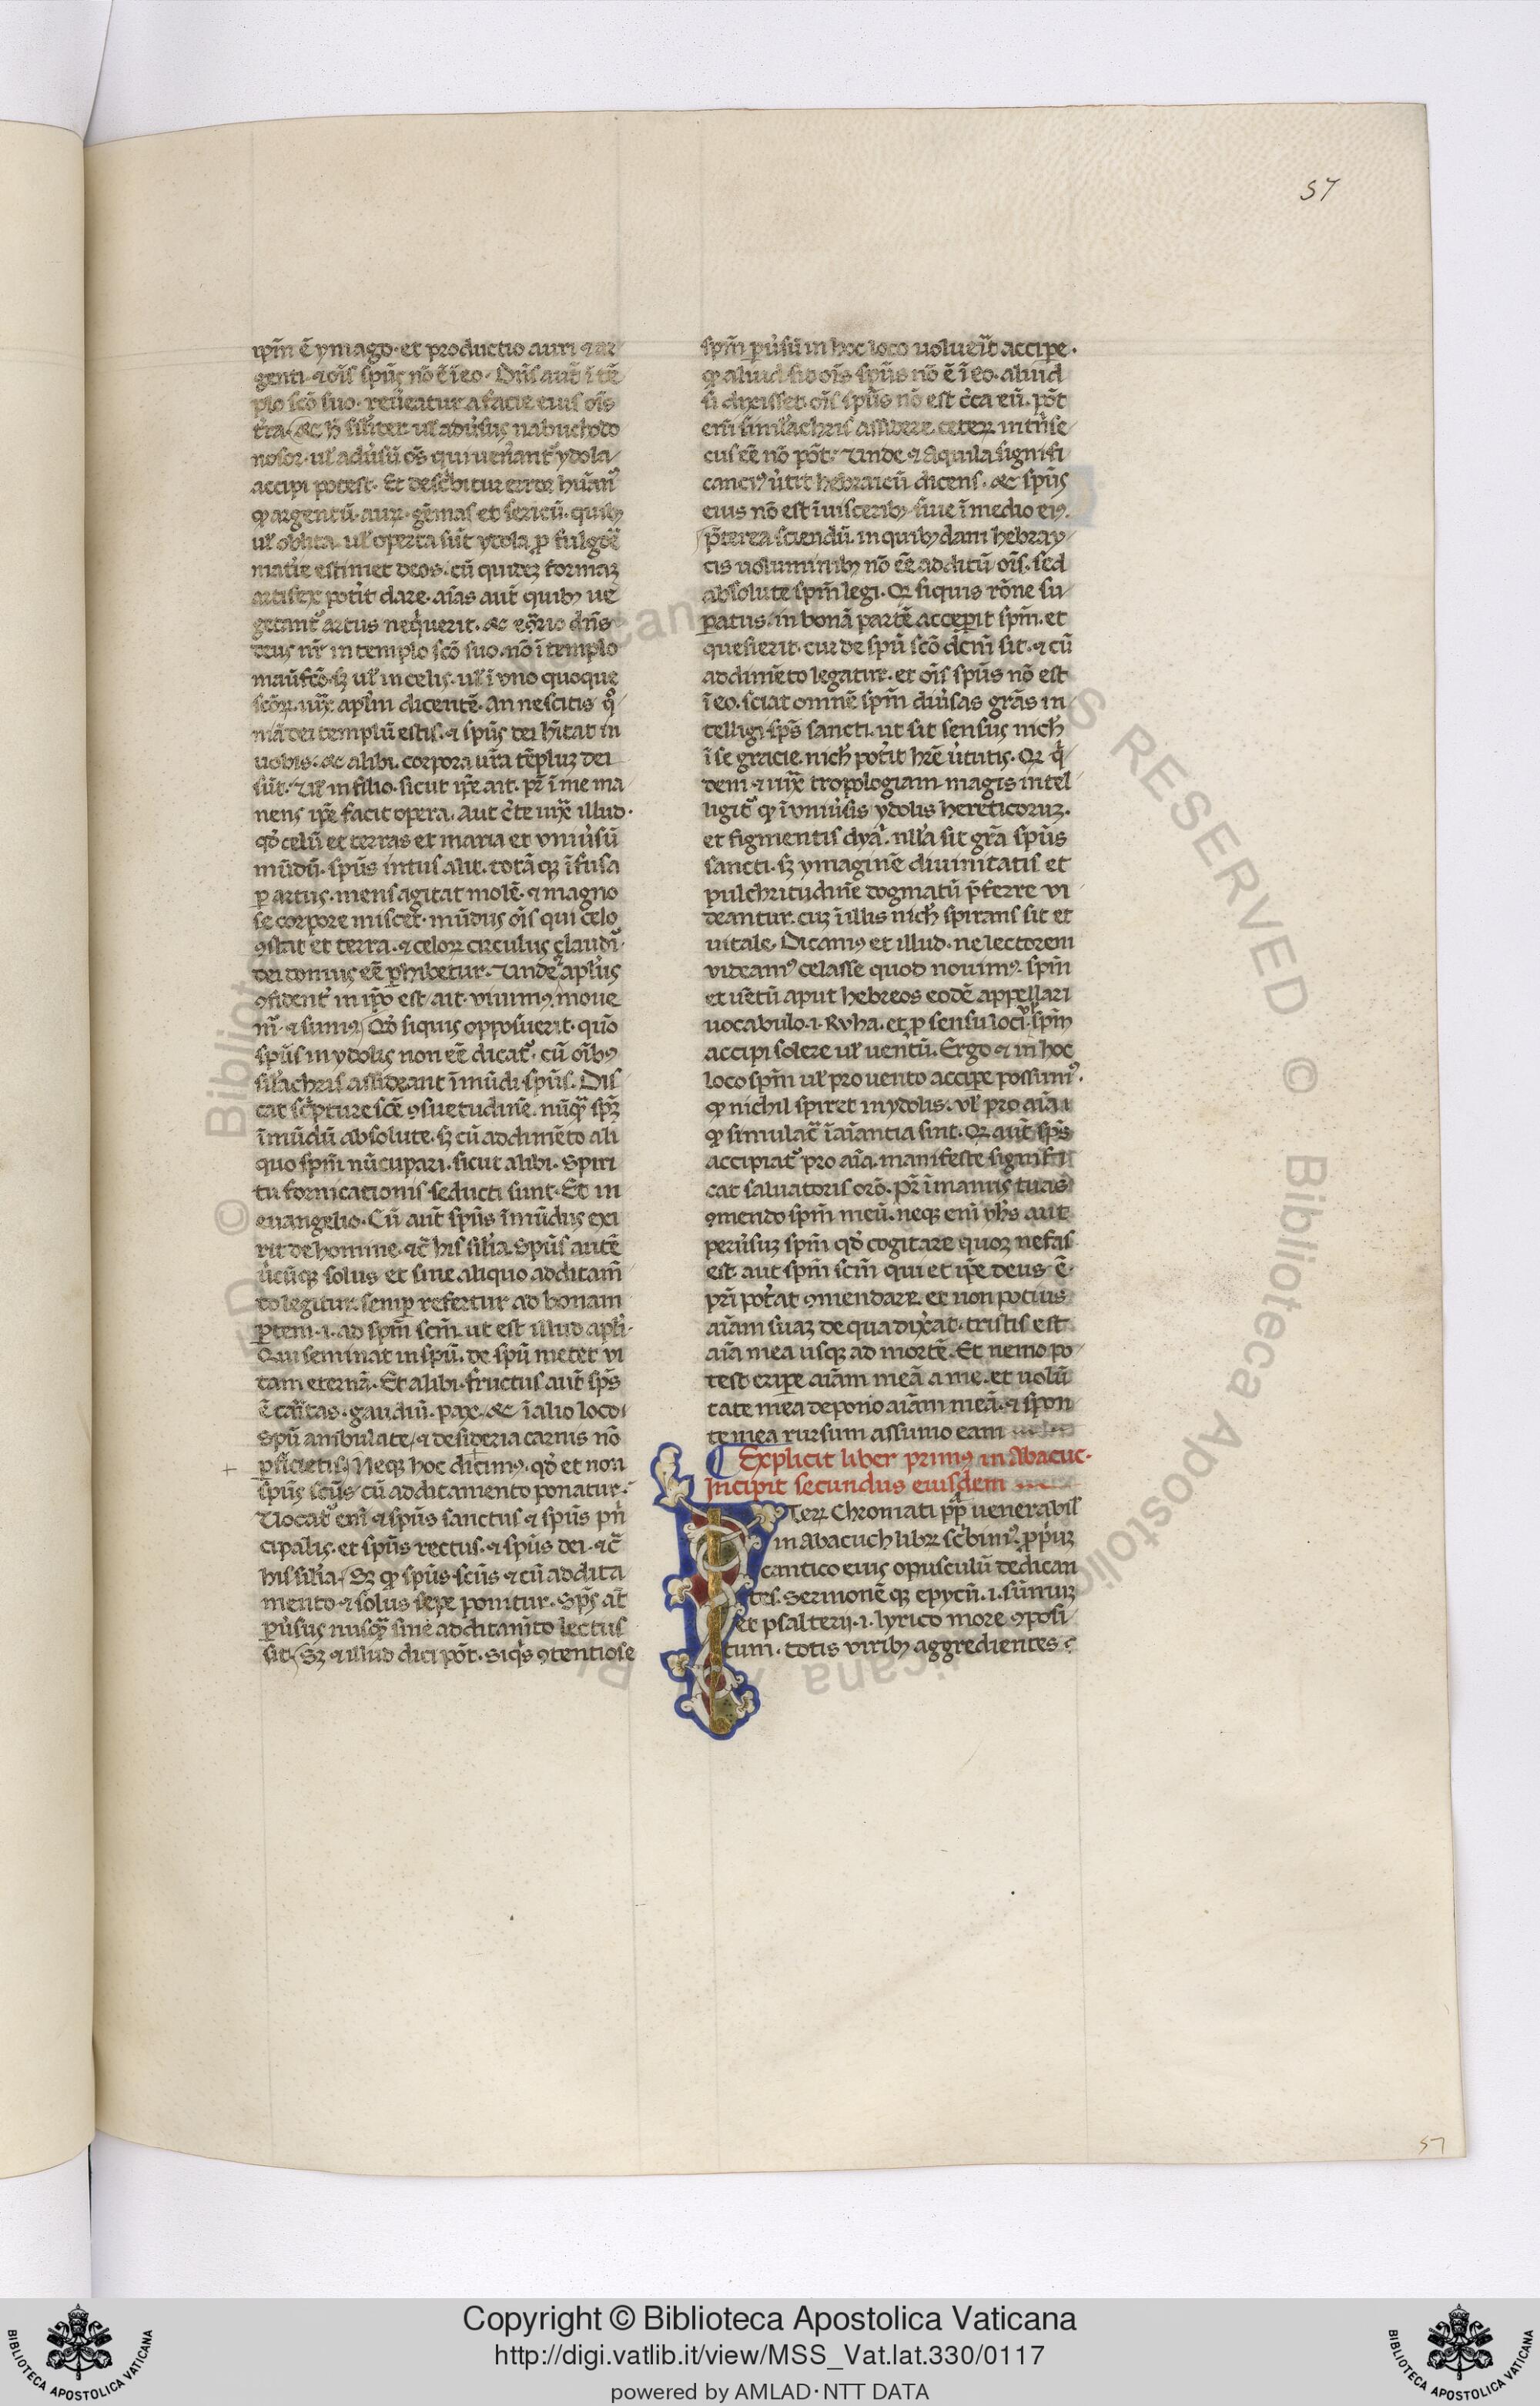 57
ip̄m ē ymago · et productio auri ⁊ ar
genti · ⁊ oīs sp̄us nō ē ī eo · Dn̄s aut̄ ī tē
plo scō suo · reu̾eatur a facie eius oīs
t̾ra · ⁊c h̄ sił̾iter uł adu̾sus nabuchodo
nosor · uł adu̾sū oēs qui uen̾ant᷑ ydola
accipi potest · Et desc̾bitur error hūan᷒
qͥ argentū · auꝝ · gēmas et sericū · quibꝫ
uł oblita uł operta sūt ydola ꝓ fulgōe
matīe estimet deos · cū quidez formaz
artifex pot̾it dare · aīas aut̄ quibꝫ ue
getant᷑ artus neq̾uerit · ⁊c eq̾rio dn̄s
deus nr̄ in templo scō suo · nō ī templo
manufcō · sꝫ uł in celis · uł ī vno quoque
scōꝝ · iux̄ apl̄m dicentē · An nescitis qͦ
niā dei templū estis · ⁊ sp̄us dei hītat in
uobis · ⁊c alibi · corpora ur̄a tēpluz dei
sūt · Uł in filio · sicut ip̄e ait · pr̄ ī me ma
nens ip̄e facit opera · Aut c̾te iux̄ illud ·
qd̾ celū et terras et maria et vniu̾sū
mūdū · sp̄us intus alit · totā qꝫ īfusa
ꝑ artus · mens agitat molē · ⁊ magno
se corpore miscet · mūdus oīs qui celo
ꝯstat et terra · ⁊ celoꝝ circulus claudit᷑ ·
dei domus eē ꝑhibetur · Unde ⁊ apl̄us
ꝯfident̾ in ip̄o est ait · viuim᷒ moue
m᷒ ⁊ sum᷒ Qd̾ siquis opposuerit · quō
sp̄us in ydolis non eē dicat᷑ · cū oībꝫ
sił̾achris assideant īmūdi sp̄us · Dis
cat sc̾pture scē ꝯsuetudinē · nūqͣ sp̄ꝫ
īmūdū absolute · sꝫ cū addimēto ali
quo sp̄m nūcupari · sicut alibi · Spiri
tu fornicationis seducti sunt · Et in
euangelio · Cū aut̄ sp̄us īmūdus exi
rit de homine · ⁊c̄ his sił̾ia · Sp̄us autē
u̾cūqꝫ solus et sine aliquo additam̄
to legitur · semꝑ refertur ad bonam
ꝑtem · i · ad sp̄m scm̄ · ut est illud apl̄i ·
Qui seminat in sp̄u · de sp̄u metet vi
tam eternā · Et alibi · fructus aut̄ sp̄s
ē car̄itas · gaudiū · pax · ⁊c ī alio loco ·
Spū ambulate / ⁊ desideria carnis nō
+ ꝑficietis · Neqꝫ hoc dicim᷒ · qd̾ et non
sp̄us scūs cū additamento ponatur ·
Uocat᷑ enī ⁊ sp̄us sanctus ⁊ sp̄us prī
cipalis · et sp̄us rectus · ⁊ sp̄us dei · ⁊c̄
his sił̾ia · Sꝫ qͥ sp̄us scūs ⁊ cū addita
mento · ⁊ solus sepe ponitur · Sp̄s at̄
ꝑu̾sus nusqͣ sine additam̄to lectus
sit · Sꝫ ⁊ illud dici pōt · Siqͥs ꝯtentiose
sp̄m ꝑu̾sū in hoc loco uoluerit accipe ·
qͥ aliud sit oīs sp̄us nō ē ī eo · aliud
si dixisset · oīs sp̄us nō est c̾ca eū · pōt
enī simił̾achris assidere · ceteꝝ int̾inse
cus eē nō pōt · Unde ⁊ Aquila signifi
canci᷒ u̾tit hebraicū dicens · ⁊c sp̄us
eius nō est ī uisceribꝫ · siue ī medio ei᷒ ·
p̄terea sciendū in quibꝫdam hebray
cis uoluminibꝫ nō eē additū oīs · sed
absolute sp̄m legi · Qꝛ siquis rōne su
ꝑatus · in bonā partē acceperit sp̄m · et
quesierit · cur de sp̄u scō dc̄m sit · ⁊ cū
addimēto legatur · et oīs sp̄us nō est
ī eo · sciat omnē sp̄m diu̾sas grās in
telligi sp̄s sancti · ut sit sensus nichł
ī se gracie · nichł pot̾it hr̄e u̾tutis · Qꝛ qͥ
dem ⁊ iux̄ tropologiam magis intel
ligit᷑ qͥ ī vniu̾sis ydolis hereticoruz ·
et figmentis dya · nll̾a sit gr̄a sp̄us
sancti · sꝫ ymaginē diuinitatis et
pulchritudinē dogmatū p̄ferre vi
deantur · cuz ī illis nichł spirans sit et
uitale · Dicam᷒ et illud · ne lectorem
videam᷒ celasse quod nouim᷒ · sp̄m
et uētū aput hebreos eodē appellari
uocabulo · i · Ruha · et ꝓ sensu loci · uł sp̄m
accipi solere uł uentū · Ergo ⁊ in hoc
loco sp̄m uł pro uento accipe possim᷒ ·
qͥ nichil spiret in ydolis · uł pro aīa ·
qͥ simulac̄ īaīantia sint · Qꝛ aut̄ sp̄s
accipiat᷑ pro aīa · manifeste signifi
cat saluatoris orō · pr̄ ī manus tuas
ꝯmendo sp̄m meū · neqꝫ enī yhs̄ aut
peru̾suz sp̄m qd̾ cogitare quoqꝫ nefas
est · aut sp̄m scm̄ qui et ip̄e deus ē ·
pr̄i pot̾at ꝯmendare · et non potius
aīam suaz de qua dix̾at · tristis est
aīa mea usqꝫ ad mortē · Et nemo po
test eripe aīam meā a me · et uolū
tate mea depono aīam meā · ⁊ spon
te mea rursum assumo eam
Explicit liber prim᷒ in Abacuc ·
Incipit secundus eiusdem
Terꝝ Chromati pp̄ venerabił
in abacuch libꝝ sc̾bim᷒ · pp̾uz
cantico eius opusculū dedican
tes · Sermonē qꝫ epycū · i · sūmuz
et psalterij · i · lyrico more ꝯposi
tum · totis viribꝫ aggredientes
57
Copyright © Biblioteca Apostolica Vaticana
http://digi.vatlib.it/view/MSS_Vat.lat.330/0117
powered by AMLAD · NTT DATA
BIBLIOTECA APOSTOLICA VATICANA
BIBLIOTECA APOSTOLICA VATICANA